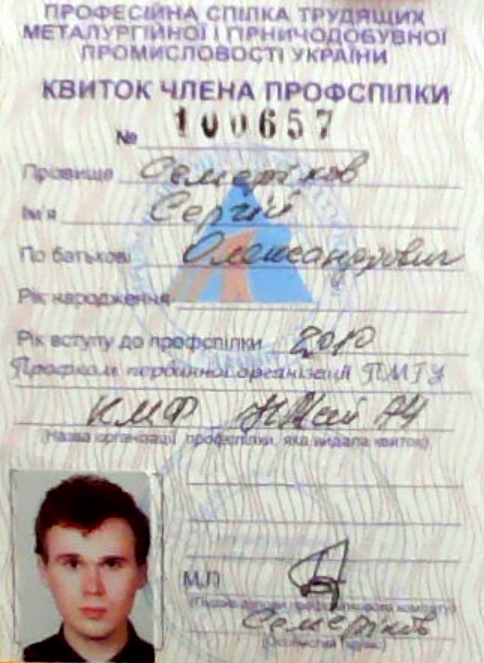 ПРОФЕСІЙНА СПІЛКА ТРУДЯЩИХ
МЕТАЛУРГІЙНОЇ І ГІРНИЧОДОБУВНОЇ
ПРОМИСЛОВОСТІ УКРАЇНИ
КВИТОК ЧЛЕНА ПРОФСПІЛКИ
№ 100657
Прізвище Семеріков
Ім'я Сергій
По батькові Олександрович
Рік народження
Рік вступу до профспілки 2010
Профком первинної організації ПМГУ
КМФ
(Назва організації профспілки, яка видала квиток)
М.П.
Семеріков
(Особистий підпис)